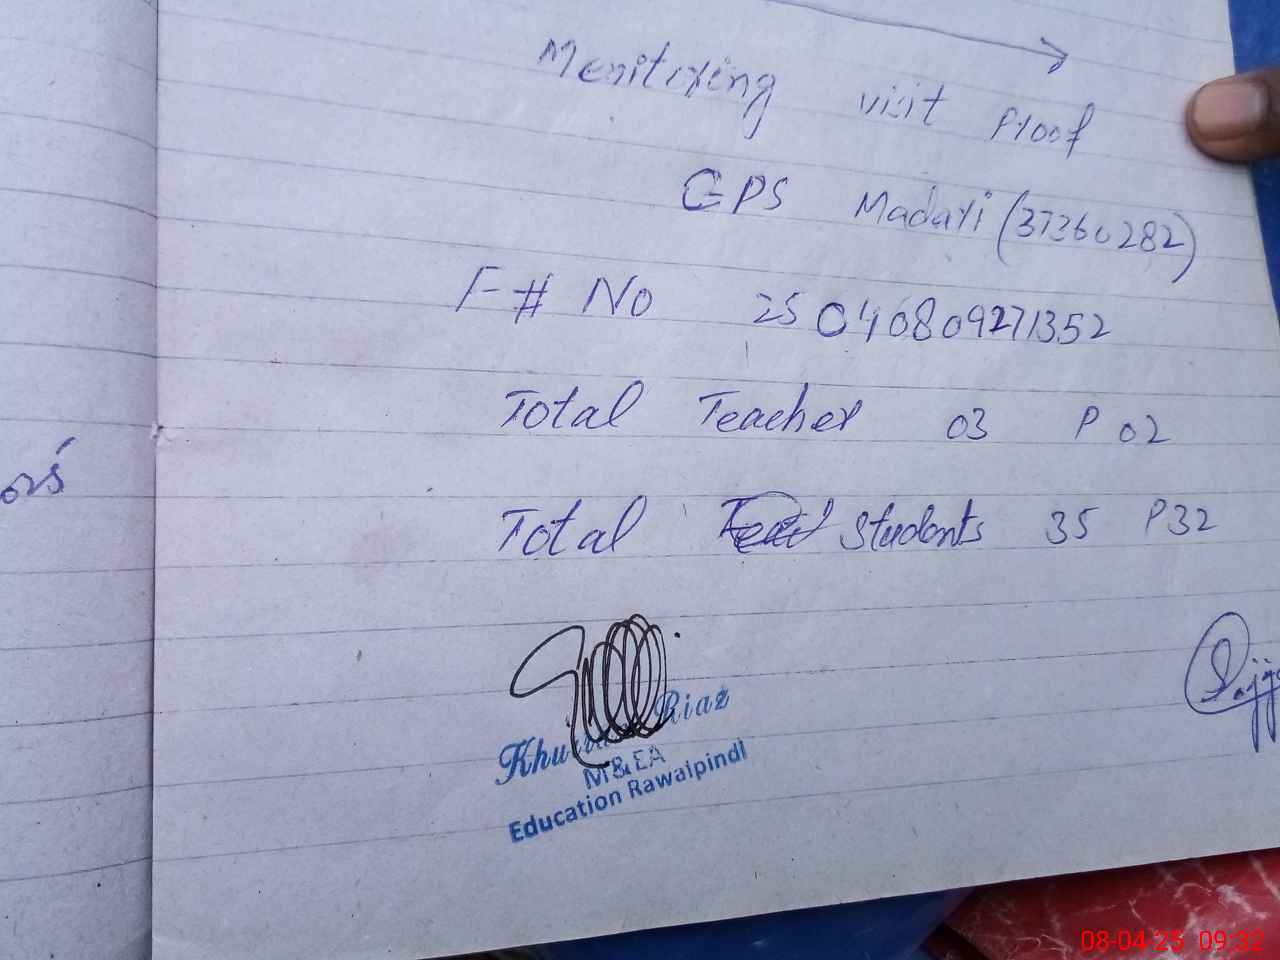 Menitoring visit Proof
GPS Madari (37360282)
F# No 25040809271352
Total Teacher 03 P 02
Total students 35 P32
Riaz
M&EA
Education Rawalpindi
08-04-25 09:32